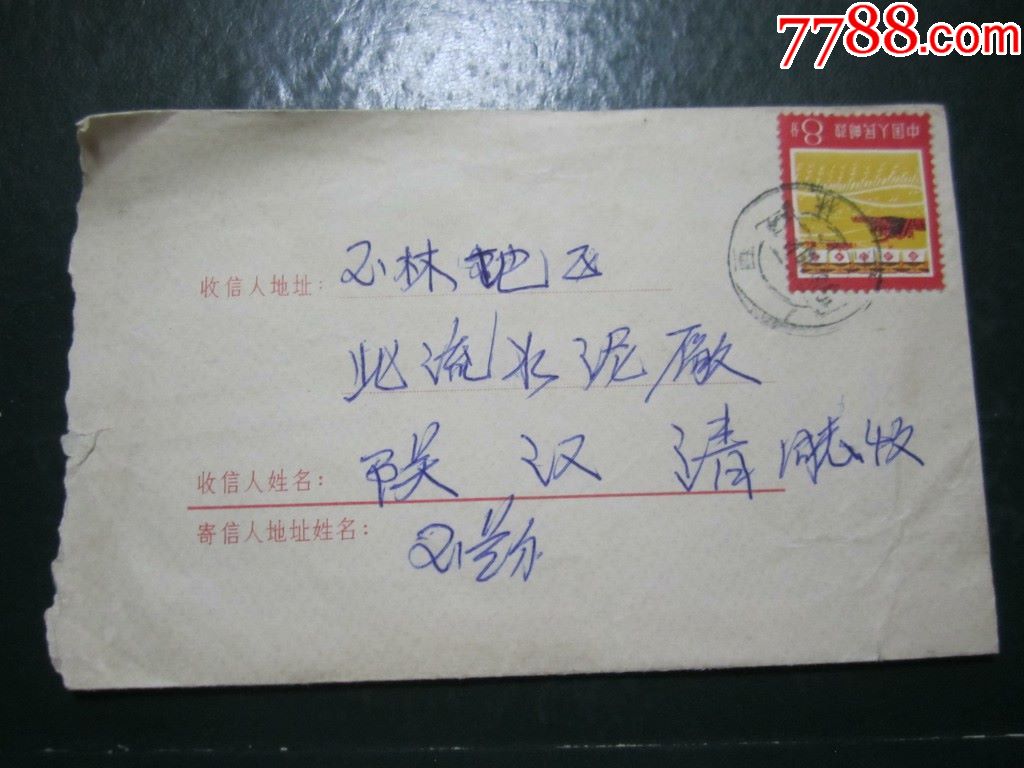 7788.com
8分
中国人民邮政
收信人地址: 玉林地区
北流水泥厰
收信人姓名: 汉清同志收
寄信人地址姓名: